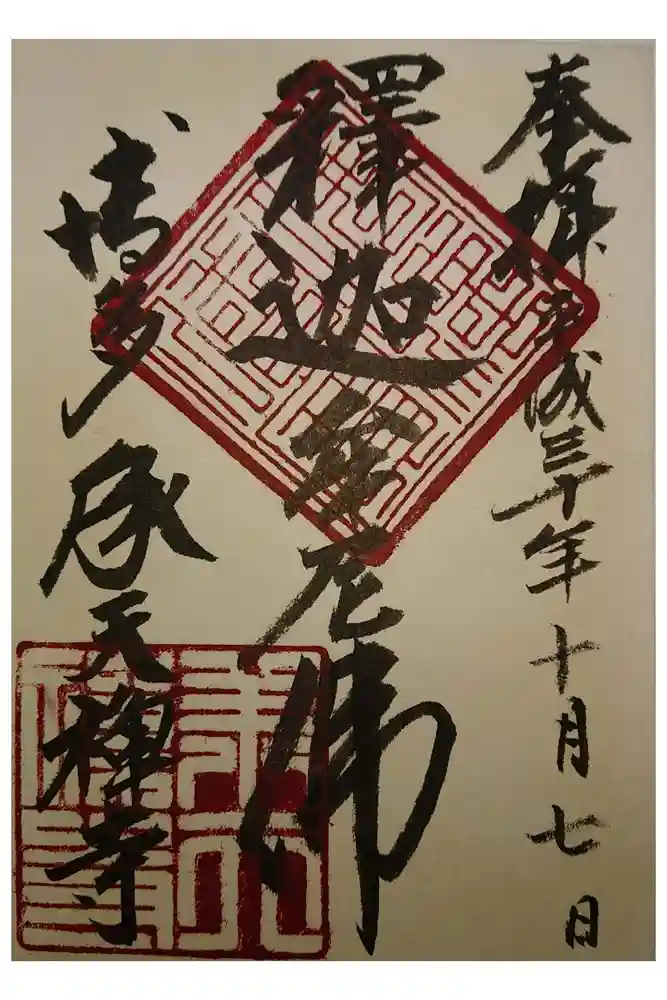 奉拝 平成三十年十月七日
釋迦牟尼佛
博多 承天禅寺
承天禅寺